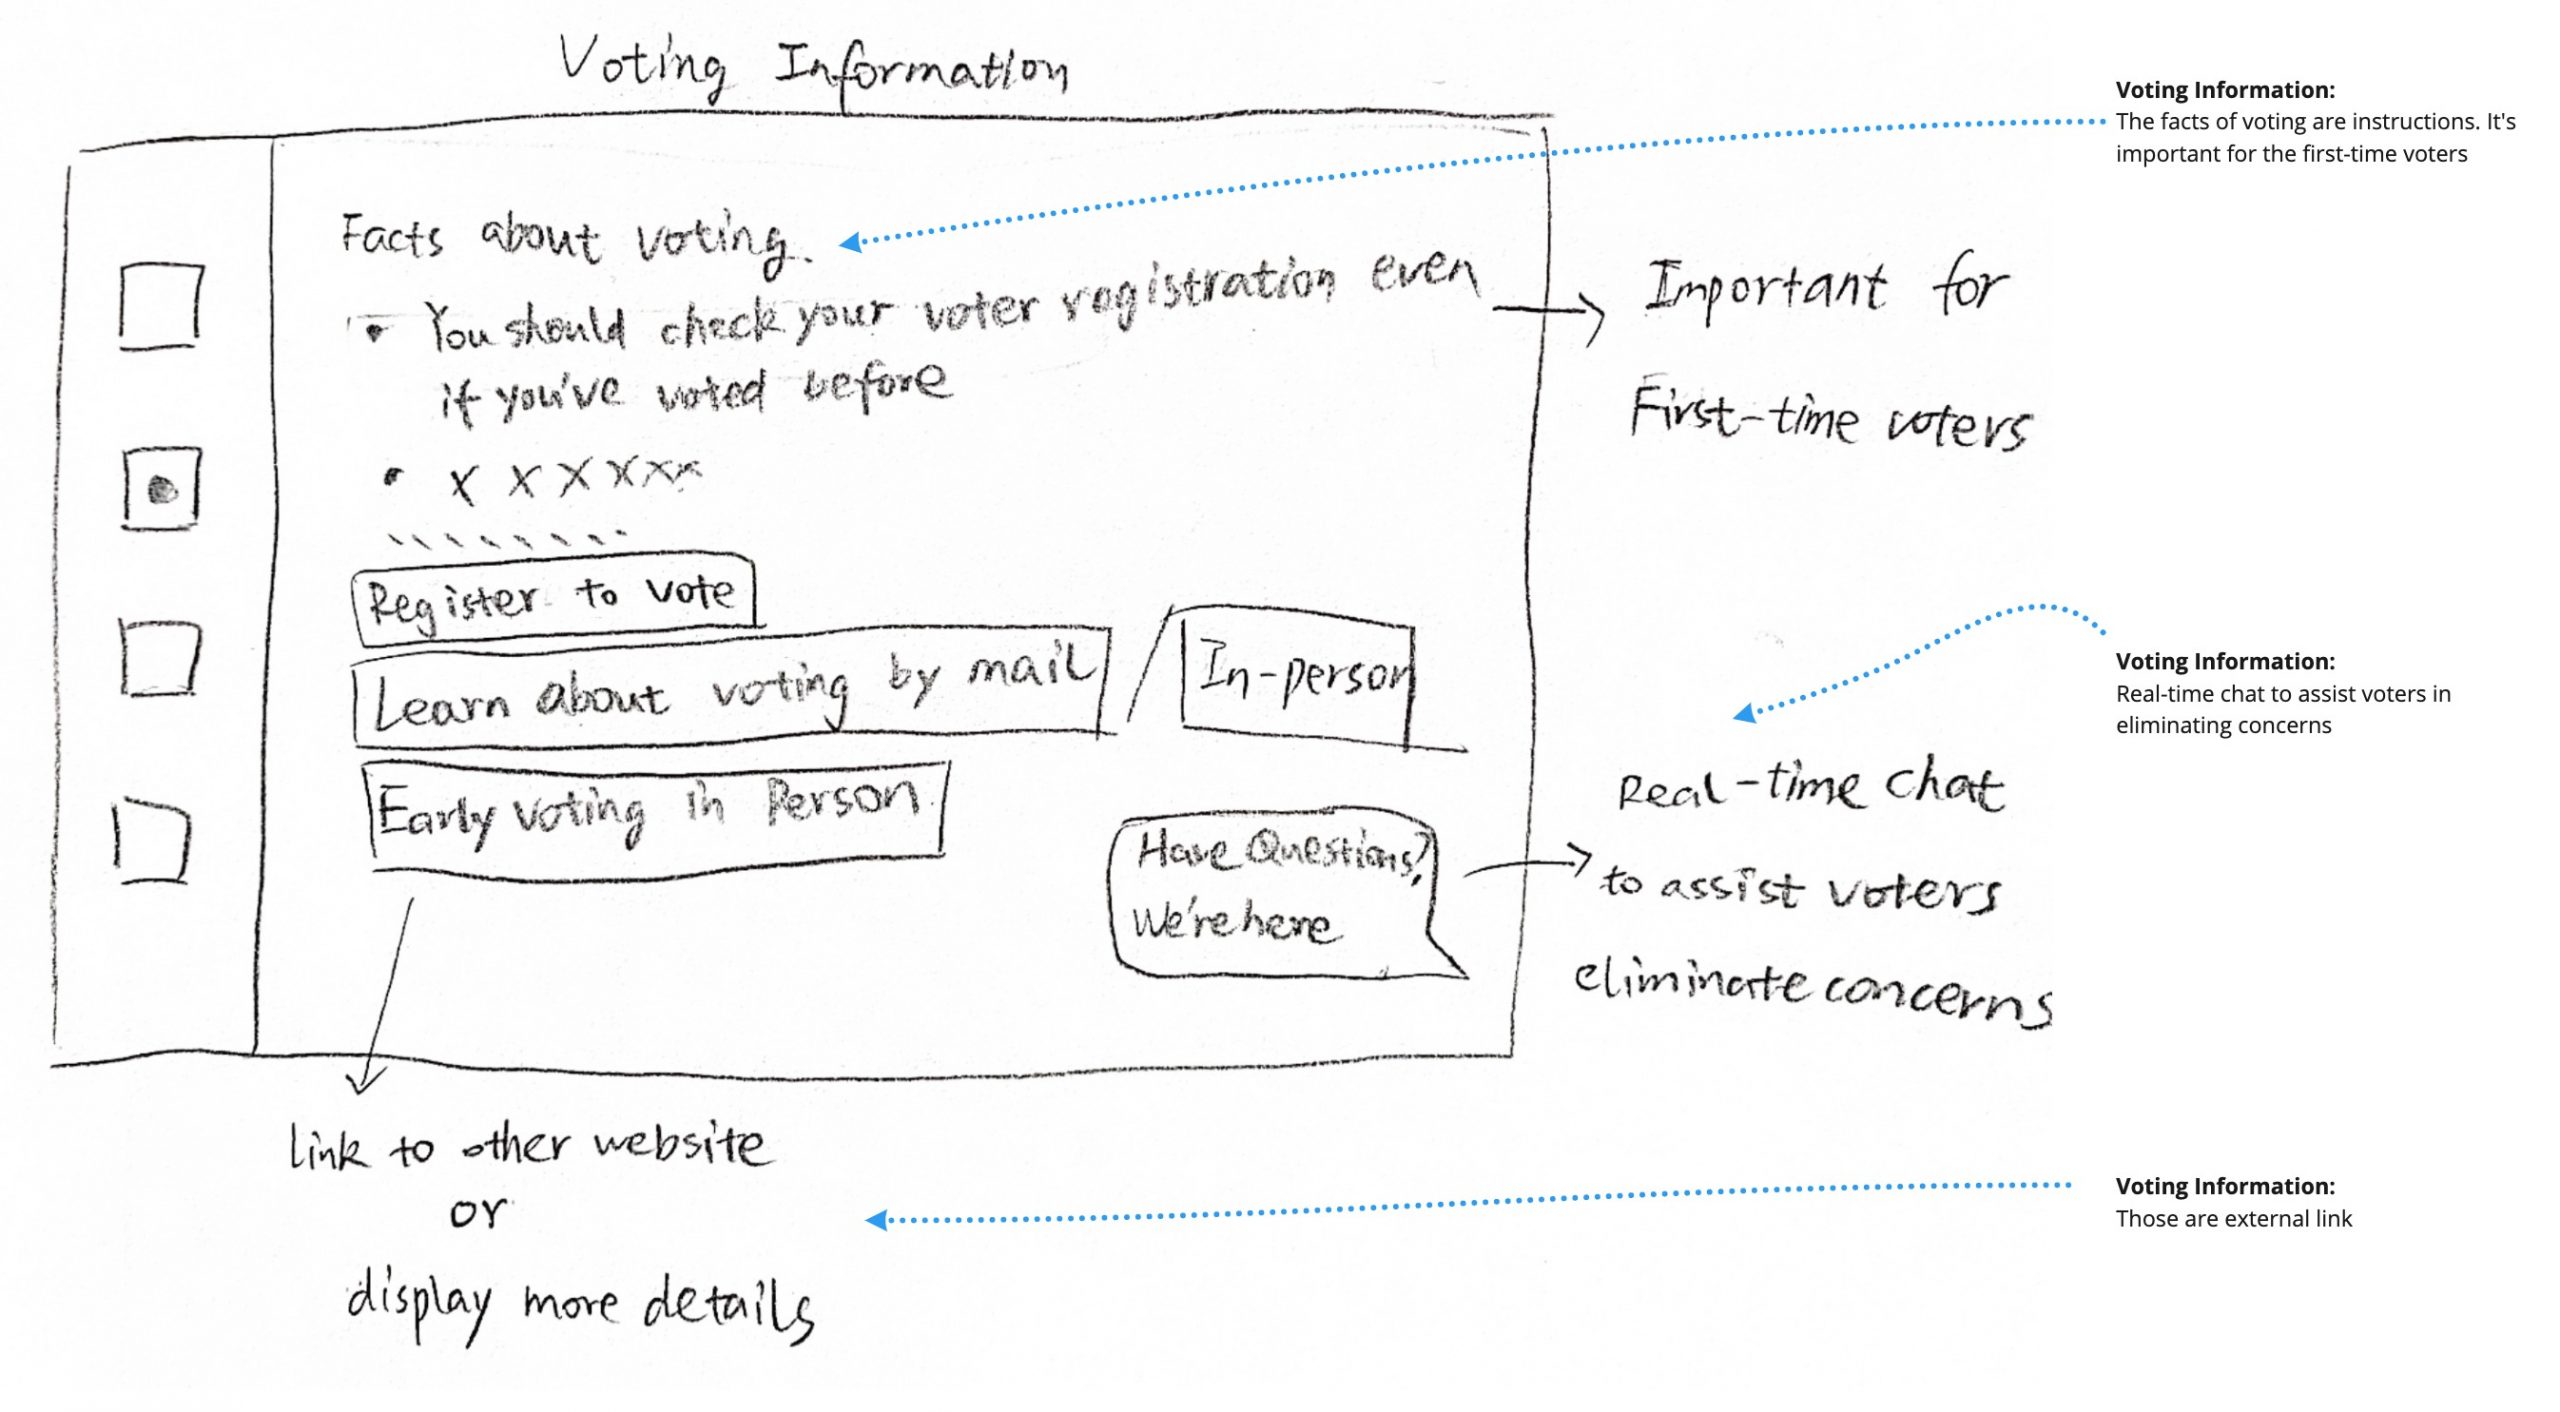 Voting Information
Facts about voting.
• You should check your voter registration even
if you've voted before
• x x x x x x
Register to vote
Learn about voting by mail / In-person
Early voting in Person
Have Questions?
We're here
Important for
First-time voters
Real-time chat
to assist voters
eliminate concerns
link to other website
or
display more details
Voting Information:
The facts of voting are instructions. It's
important for the first-time voters
Voting Information:
Real-time chat to assist voters in
eliminating concerns
Voting Information:
Those are external link